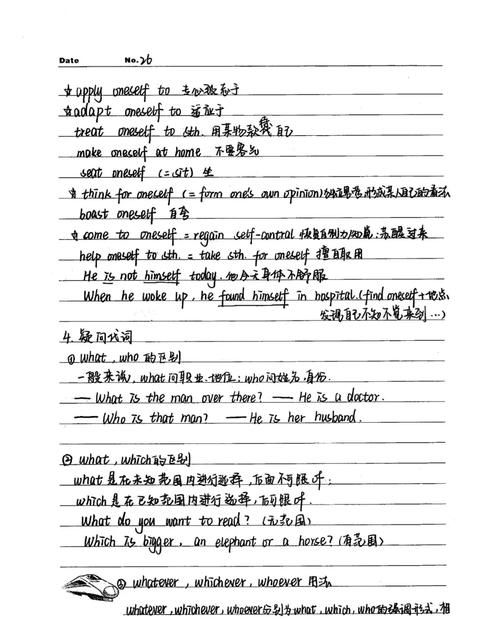 Date No.26
☆apply oneself to 专心致志于
☆adapt oneself to 适应于
treat oneself to sth. 用某物款待自己
make oneself at home 不要客气
seat oneself (=sit) 坐
☆think for oneself (=form one's own opinion) 独立思考,形成某人自己的看法
boast oneself 自夸
☆come to oneself = regain self-control 恢复自制力/知觉;苏醒过来
help oneself to sth. = take sth. for oneself 擅自取用
He is not himself today. 他今天身体不舒服
When he woke up, he found himself in hospital.(find oneself+地点
发现自己不知不觉来到…)
4.疑问代词
① what, who的区别
一般来说,what问职业、地位;who问姓名、身份.
—— What is the man over there? —— He is a doctor.
—— Who is that man? —— He is her husband.
② what, which的区别
what是在未知范围内进行选择,后面不可跟of;
which是在已知范围内进行选择,后可跟of.
What do you want to read? (无范围)
Which is bigger, an elephant or a horse? (有范围)
③ whatever, whichever, whoever 用法
whatever, whichever, whoever分别为what, which, who的强调形式,相